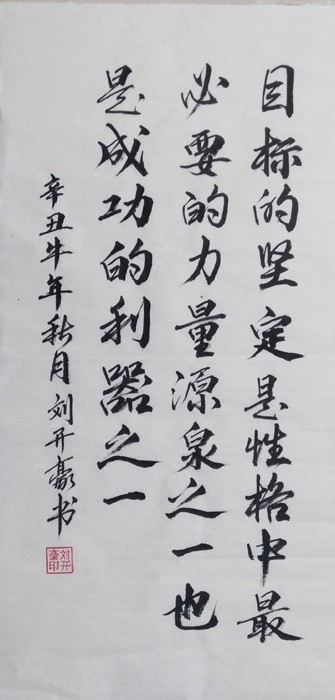 目标的坚定是性格中最
必要的力量源泉之一也
是成功的利器之一
辛丑牛年秋月刘开豪书
刘开豪印